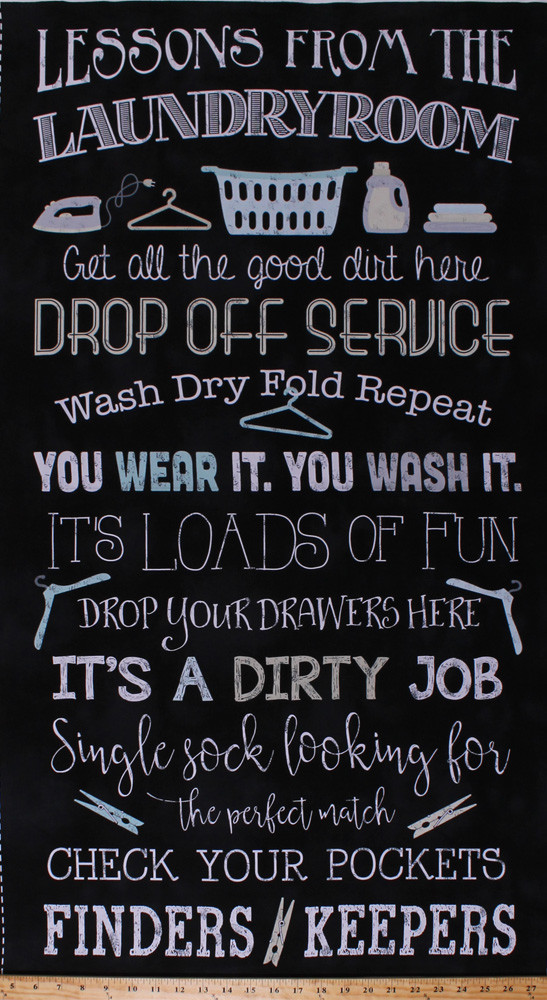 LESSONS FROM THE
LAUNDRY ROOM
Get all the good dirt here
DROP OFF SERVICE
Wash Dry Fold Repeat
YOU WEAR IT. YOU WASH IT.
IT'S LOADS OF FUN
DROP YOUR DRAWERS HERE
IT'S A DIRTY JOB
Single sock looking for
the perfect match
CHECK YOUR POCKETS
FINDERS KEEPERS
5 6 7 8 9 10 11 12 13 14 15 16 17 18 19 20 21 22 23 24 25 26 27